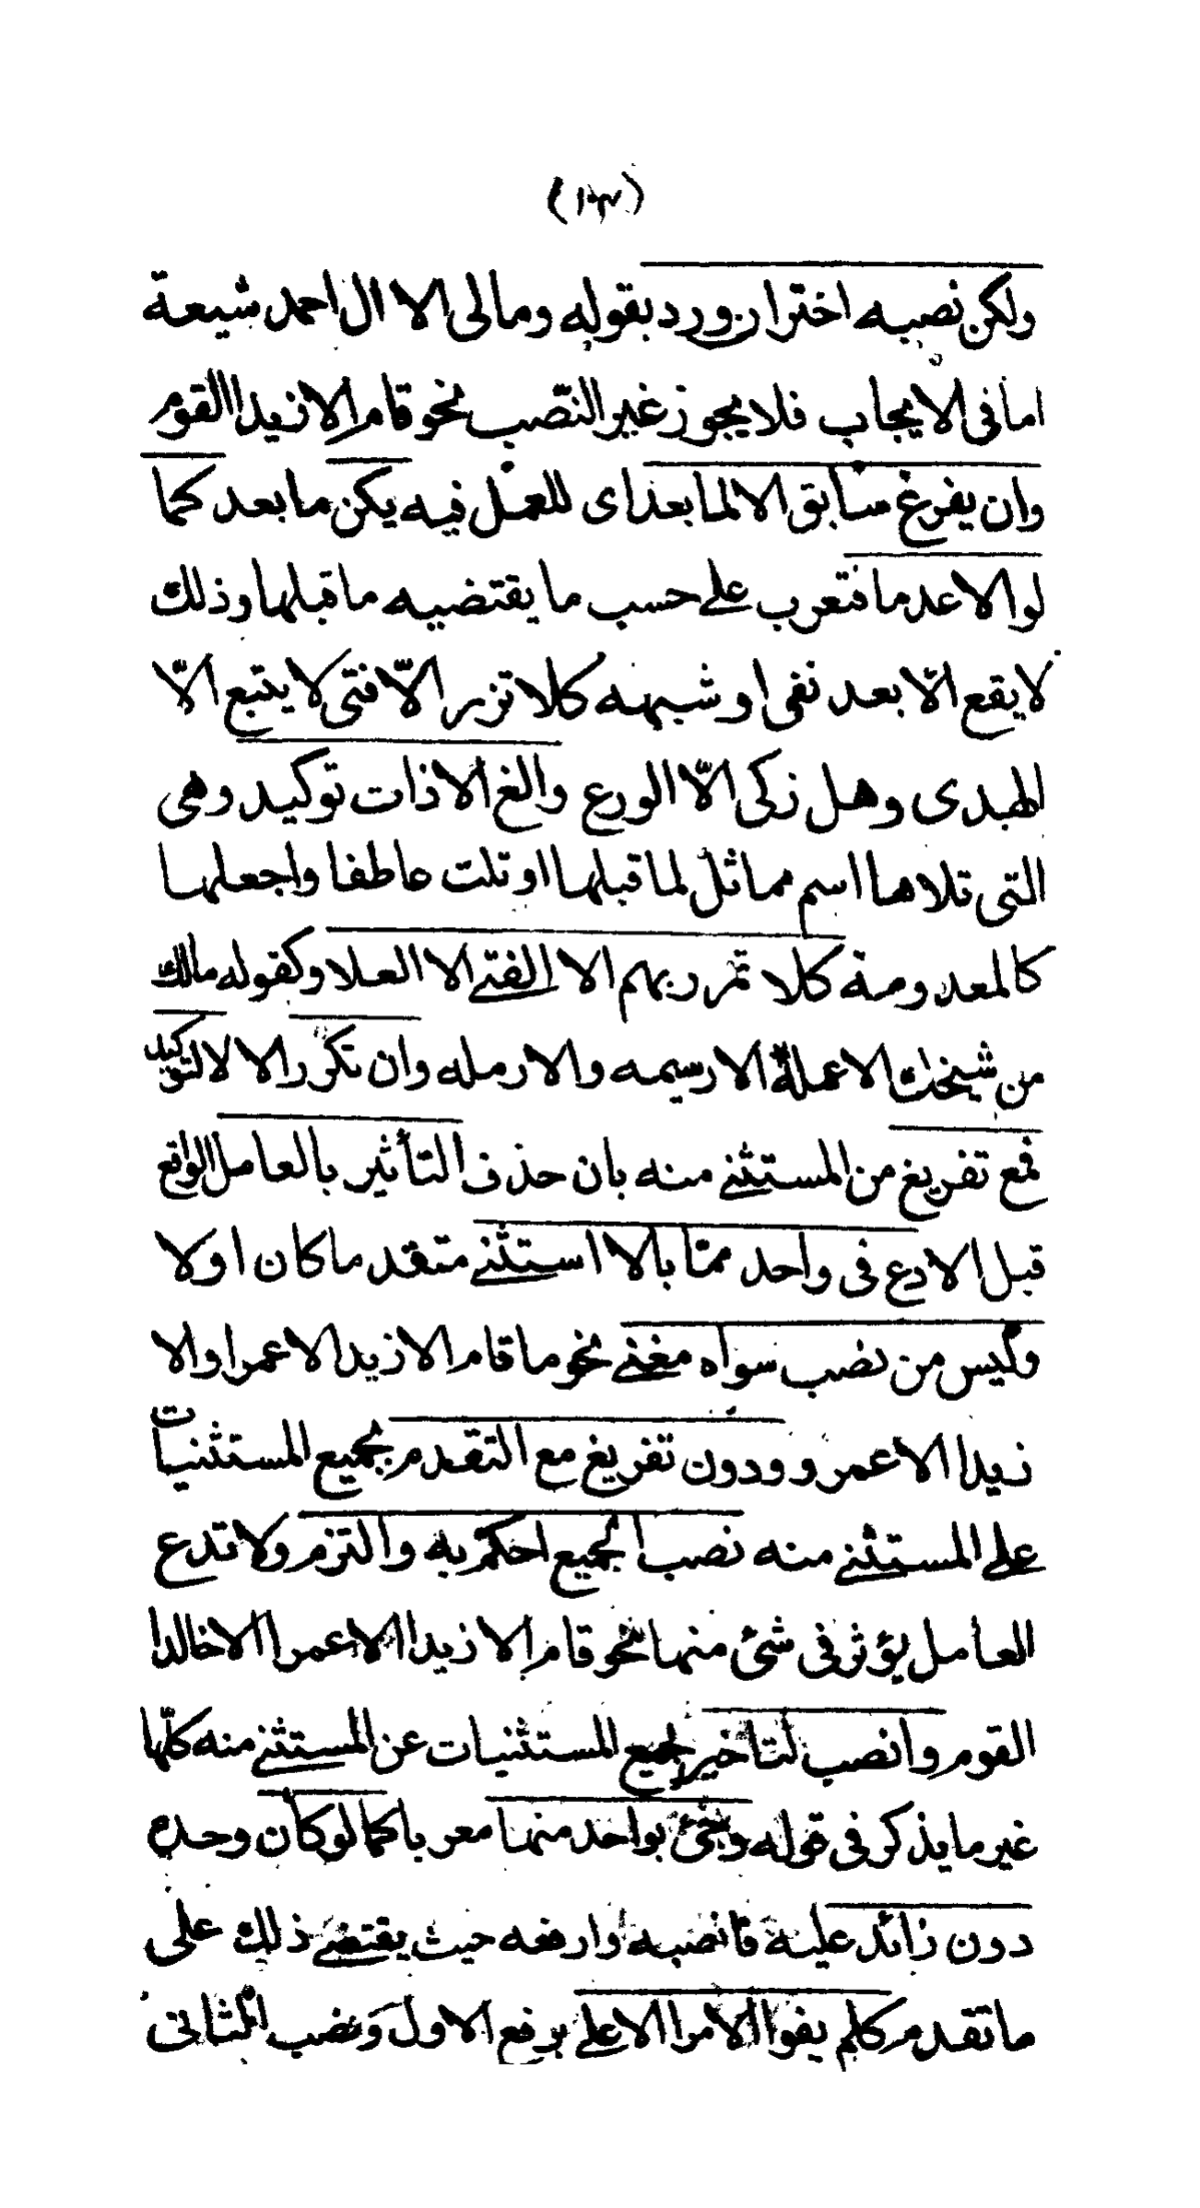 ولكن نصبه اختر ان ورد بقوله ومالى الا ال احمد شيعة
اما فى الايجاب فلا يجوز غير النّصب نحو قام الا زيدا القوم
وان يفرغ سابق الا لما بعد اى للعمل فيه يكن ما بعد كما
لو الا عدما فتعرب على حسب ما يقتضيه ما قبلها وذلك
لا يقع الّا بعد نفى او شبهه كلا تزر الّا فتى لا يتبع الّا
الهدى وهل زكى الّا الورع والغ الا ذات توكيد وهى
التى تلاها اسم مماثل لما قبلها او تلت عاطفا واجعلها
كالمعدومة كلا تمرر بهم الا الفتى الا العلا وكقوله مالك
من شيخك الا عمله الا رسيمه والا رمله وان تكرر الا لا لتوكيد
فمع تفريغ من المستثنى منه بان حذف التأثير بالعامل الواقع
قبل الا دع فى واحد ممّا بالا استثنى متقدما كان او لا
وليس من نصب سواه مغنى نحو ما قام الا زيد الا عمرا والا
زيدا الا عمرو ودون تفريغ مع التقدم بجميع المستثنيات
على المستثنى منه نصب الجميع احكم به والتزم ولا تدع
العامل يؤثر فى شئ منها نحو قام الا زيدا الا عمرا الا خالدا
القوم وانصب لتاخير لجميع المستثنيات عن المستثنى منه كلّها
غير ما يذكر فى قوله وجئ بواحد منها معربا كما لو كان وحده
دون زائد عليه فانصبه او ارفعه حيث يقتضى ذلك على
ما تقدم كلم يفوا الا امرا الا على برفع الاول ونصب الثانى